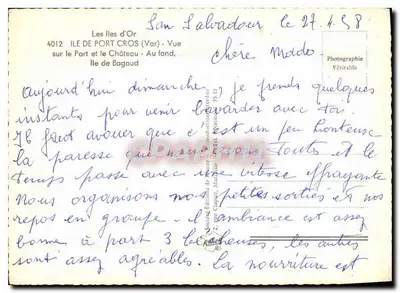 Les Iles d'Or
4012 ILE DE PORT CROS (Var) - Vue
sur le Port et le Château - Au fond,
Ile de Bagaud
San Salvadour le 27.4.58
Chère Mado
Photographie
Véritable
Aujourd'hui dimanche je prends quelques
instants pour venir bavarder avec toi.
Il faut avouer que c'est un peu honteuse
la paresse que nous avons toutes et le
temps passe avec une vitesse effrayante
Nous organisons nos petites sorties et nos
repos en groupe - l'ambiance est assez
bonne à part 3 les autres
sont assez agréables. La nourriture est